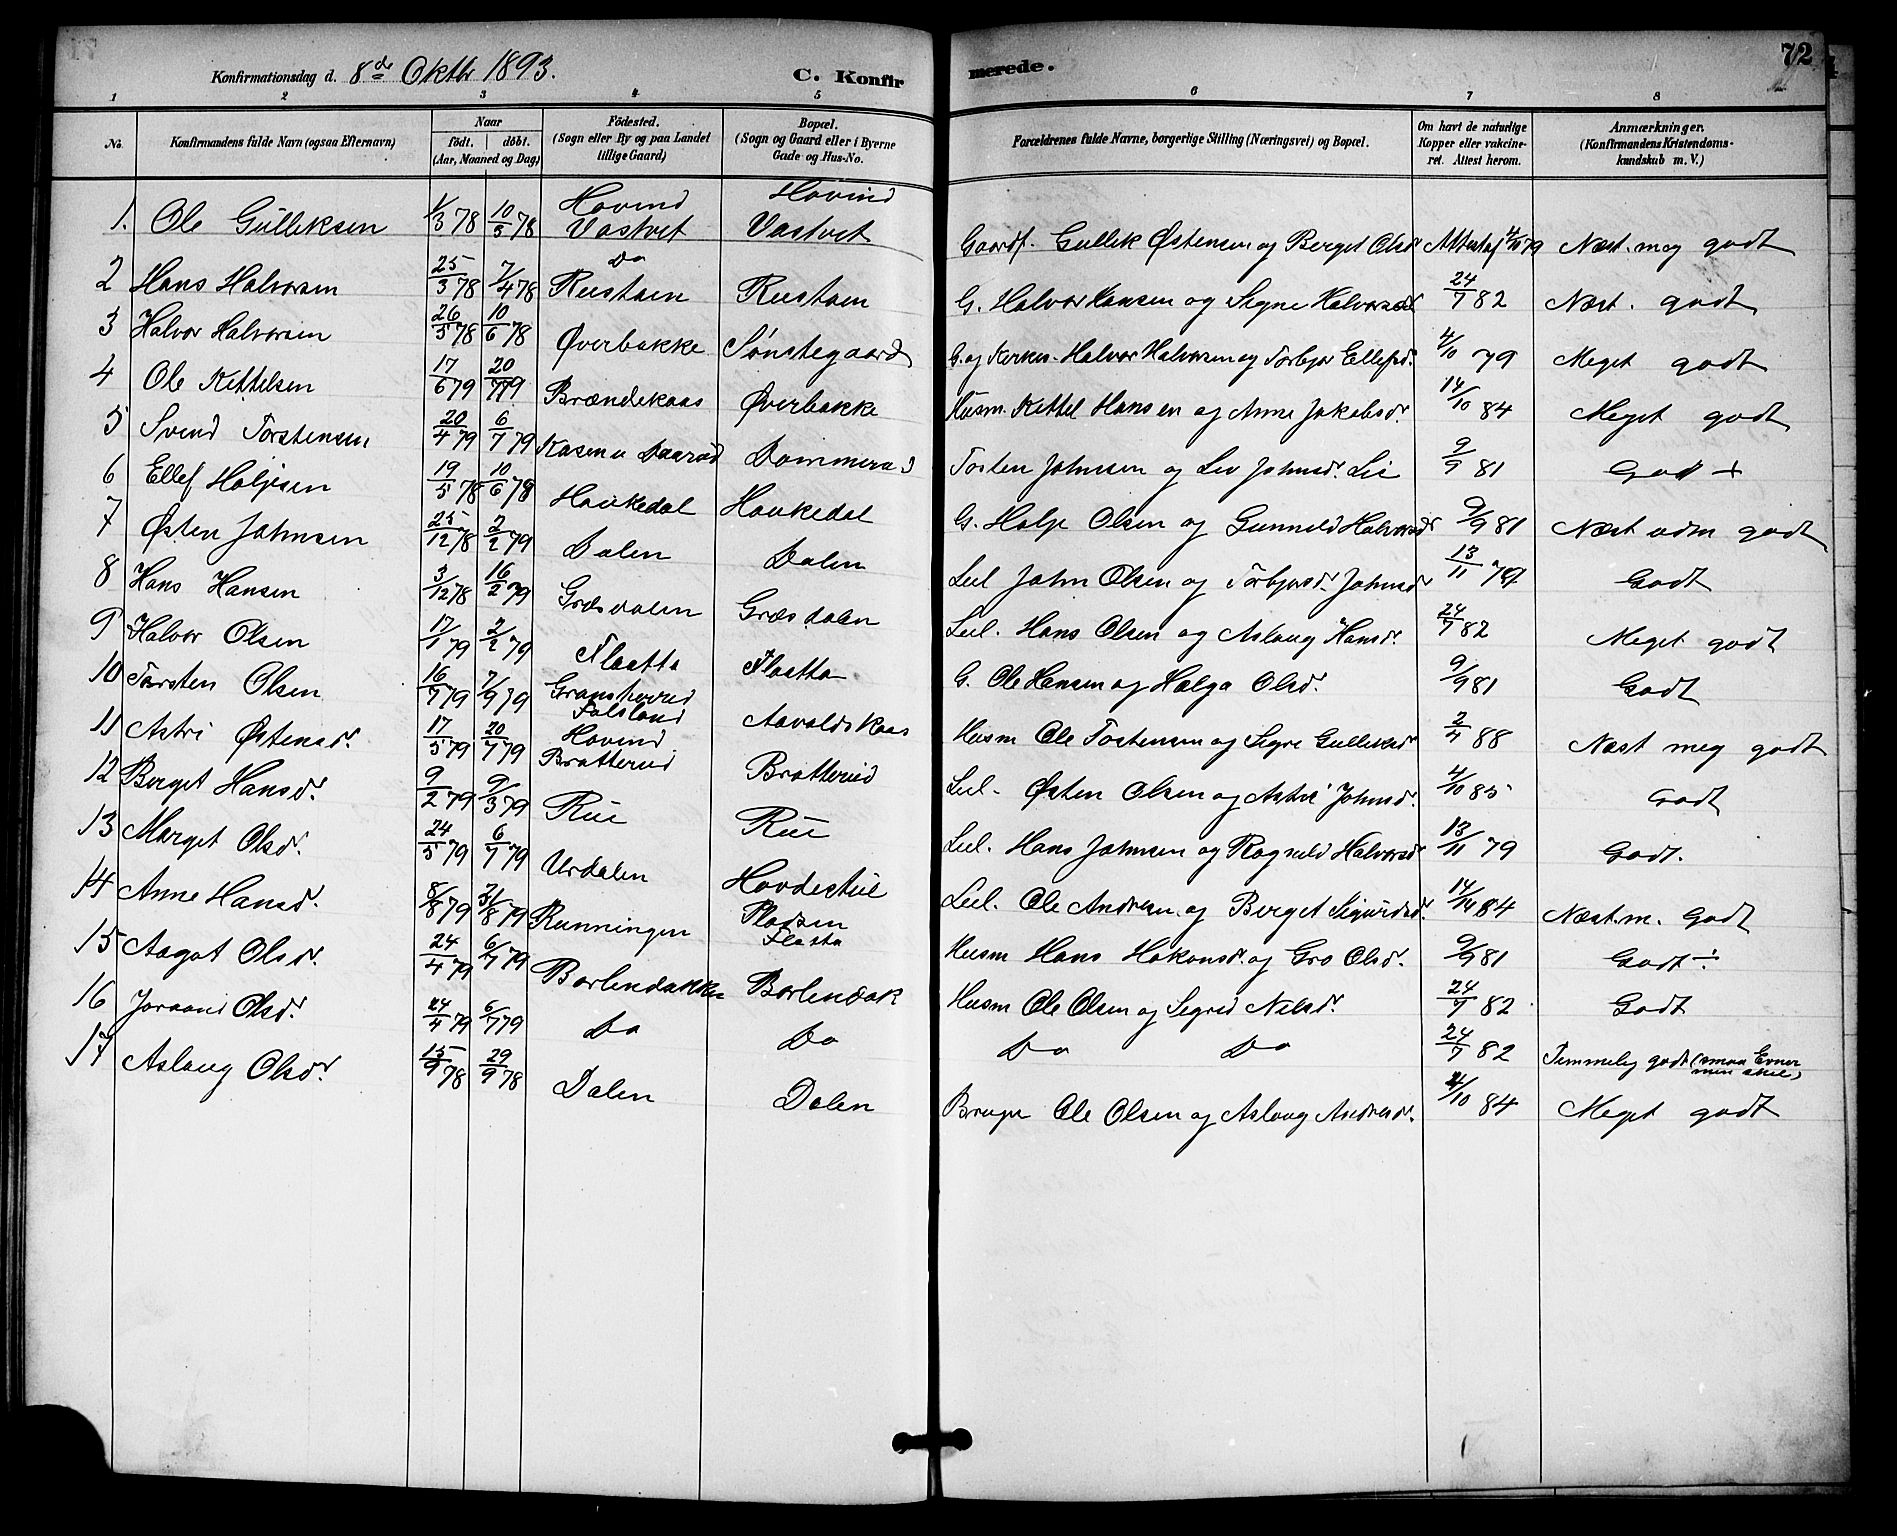 Konfirmationsdag d. 8de Oktbr 1893. C. Konfirmerede. 72
1 2 3 4 5 6 7 8
No. Konfirmandens fulde Navn (ogsaa Efternavn) Naar födt. döbt. (Aar, Maaned og Dag) Födested. (Sogn eller By og paa Landet tillige Gaard) Bopæl. (Sogn og Gaard eller i Byerne Gade og Hus-No. Forældrenes fulde Navne, borgerlige Stilling (Næringsvei) og Bopæl. Om havt de naturlige Kopper eller vakcineret. Attest herom. Anmærkninger. (Konfirmandens Kristendomskundskab m. V.)
1. Ole Gulleksen 1/3 78 10/5 78 Hovind Vastvet Hovind Vastvet Gaardf. Gullik Østensen og Berget Olsdr Attest af 4/10 79 Næst. meg godt
2 Hans Halvorsen 25/3 78 7/4 78 Do Rustaen Rustaen G. Halvor Hansen og Signe Halvorsdr 24/7 82 Næst. godt
3 Halvor Halvorsen 26/5 78 10/6 78 Øverbakke Sönstegaard G. og Kirkes. Halvor Halvorsen og Torbjør Ellefsd. 4/10 79 Meget godt
4 Ole Kittelsen 17/6 79 20/7 79 Brændekaas Øverbakke Husm. Kittel Hansen og Anne Jakobsdr. 14/10 84 Meget godt
5 Svend Torstensen 20/4 79 6/7 79 Dommerud Tosten Johnsen og Liv Johnsdr. Lie 9/9 81 God +
6 Ellef Holjesen 19/5 78 10/6 78 Haukedal Haukedal G. Holje Olsen og Gunnild Halvorsdr 9/9 81 Næst udm godt
7 Østen Johnsen 25/12 78 2/2 79 Dalen Dalen Leil John Olsen og Torbjørsdr. Johnsdr 13/11 79 Godt
8 Hans Hansen 3/12 78 16/2 79 Græsdalen Græsdalen Leil. Hans Olsen og Aslaug Hansdr. 24/7 82 Meget godt
9 Halvor Olsen 17/1 79 2/2 79 Flaatta Flaatta G. Ole Hansen og Hælga Olsdr. 9/9 81 Godt
10 Torsten Olsen 16/7 79 7/9 79 Gransherred Falsland Aavaldskaas Husm Ole Tostensen og Signe Gulliksdr 2/7 88 Næst meg godt
11 Astri Østensdr. 17/5 79 20/7 79 Hovind Bratterud Bratterud Leil. Østen Olsen og Astri Johnsdr. 4/10 85 Godt
12 Berget Hansdr. 9/2 79 9/3 79 Rue Rue Leil. Hans Johnsen og Ragnild Halvorsdr 13/11 79 Godt.
13 Marget Olsdr. 24/5 79 6/7 79 Urdalen Hovdestul Leil. Ole Andresen og Berget Sigurdsdr. 14/10 84 Næst. m. Godt
14 Anne Hansdr. 8/8 79 31/8 79 Runningen Pladsen Flaata Husm Hans Hakonsdr. og Gro Olsdr. 9/9 81 Godt ÷
15 Aagot Olsdr. 24/4 79 6/7 79 Borlendakken Borlendak Husm Ole Olsen og Sigrid Nilsdr. 24/7 82 Godt
16 Joraand Olsdr. 24/4 79 6/7 79 Do Do Do Do 24/7 82 Temmelig godt (smaa Evner men skik.)
17 Aslaug Olsdr. 15/9 78 29/9 78 Dalen Dalen Bruger Ole Olsen og Aslaug Andresdr. 4/10 84 Meget godt